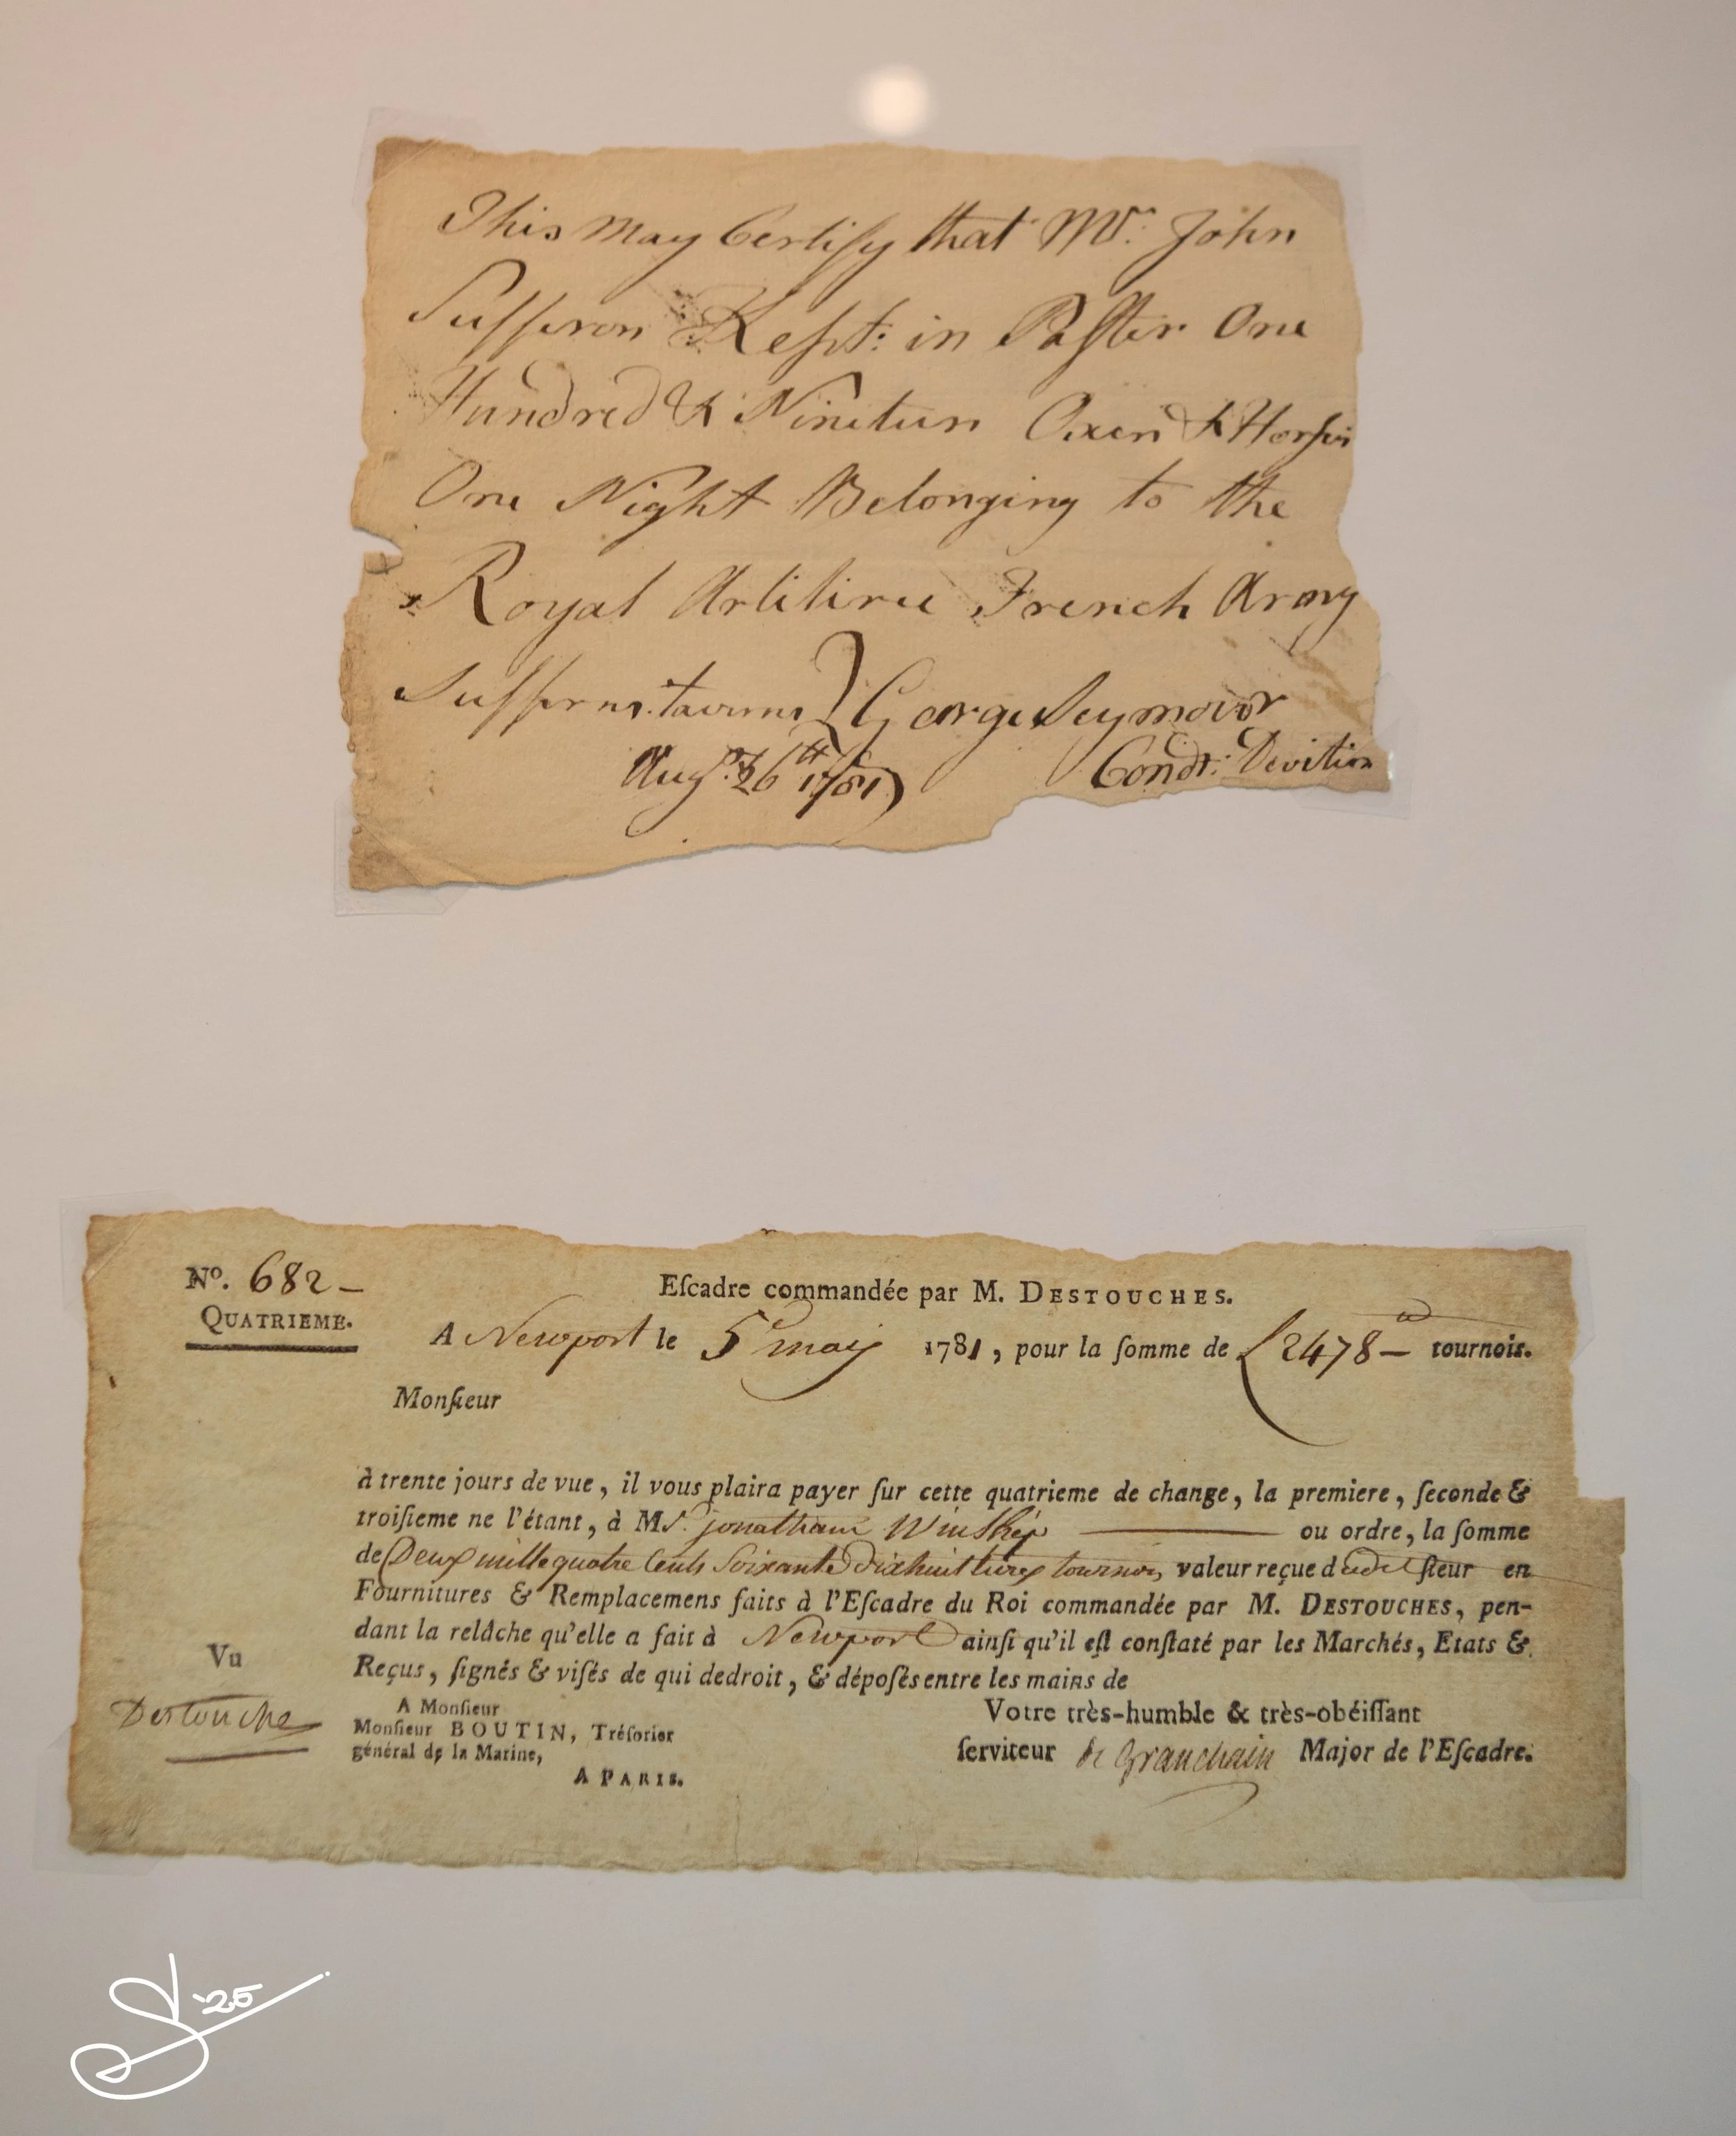 This may Certify that Mr. John
Sufferon Kept: in Paster One
Hundred & Nineteen Oxen & Horses
One Night Belonging to the
Royal Artilirie French Army
Sufferns. taverne } George Seymour
Augst. 26th 1781 Condr. Devition
No. 682 –
QUATRIEME.
Eſcadre commandée par M. DESTOUCHES.
A Newport le 5 may 1781, pour la ſomme de £ 2478 – tournois.
Monſieur
à trente jours de vue, il vous plaira payer ſur cette quatrieme de change, la premiere, ſeconde &
troiſieme ne l'étant, à Mr. jonathan Winship ——— ou ordre, la ſomme
de Deux mille quatre Cents Soixante dixhuit livres tournois, valeur reçue dudit ſieur en
Fournitures & Remplacemens faits à l'Eſcadre du Roi commandée par M. DESTOUCHES, pen-
dant la relâche qu'elle a fait à Newport ainſi qu'il eſt conſtaté par les Marchés, Etats &
Reçus, ſignés & viſés de qui dedroit, & dépoſés entre les mains de
Vu
Destouches
A Monſieur
Monſieur BOUTIN, Tréſorier
général de la Marine,
A PARIS.
Votre très-humble & très-obéiſſant
ſerviteur de Granchain Major de l'Eſcadre.
'25